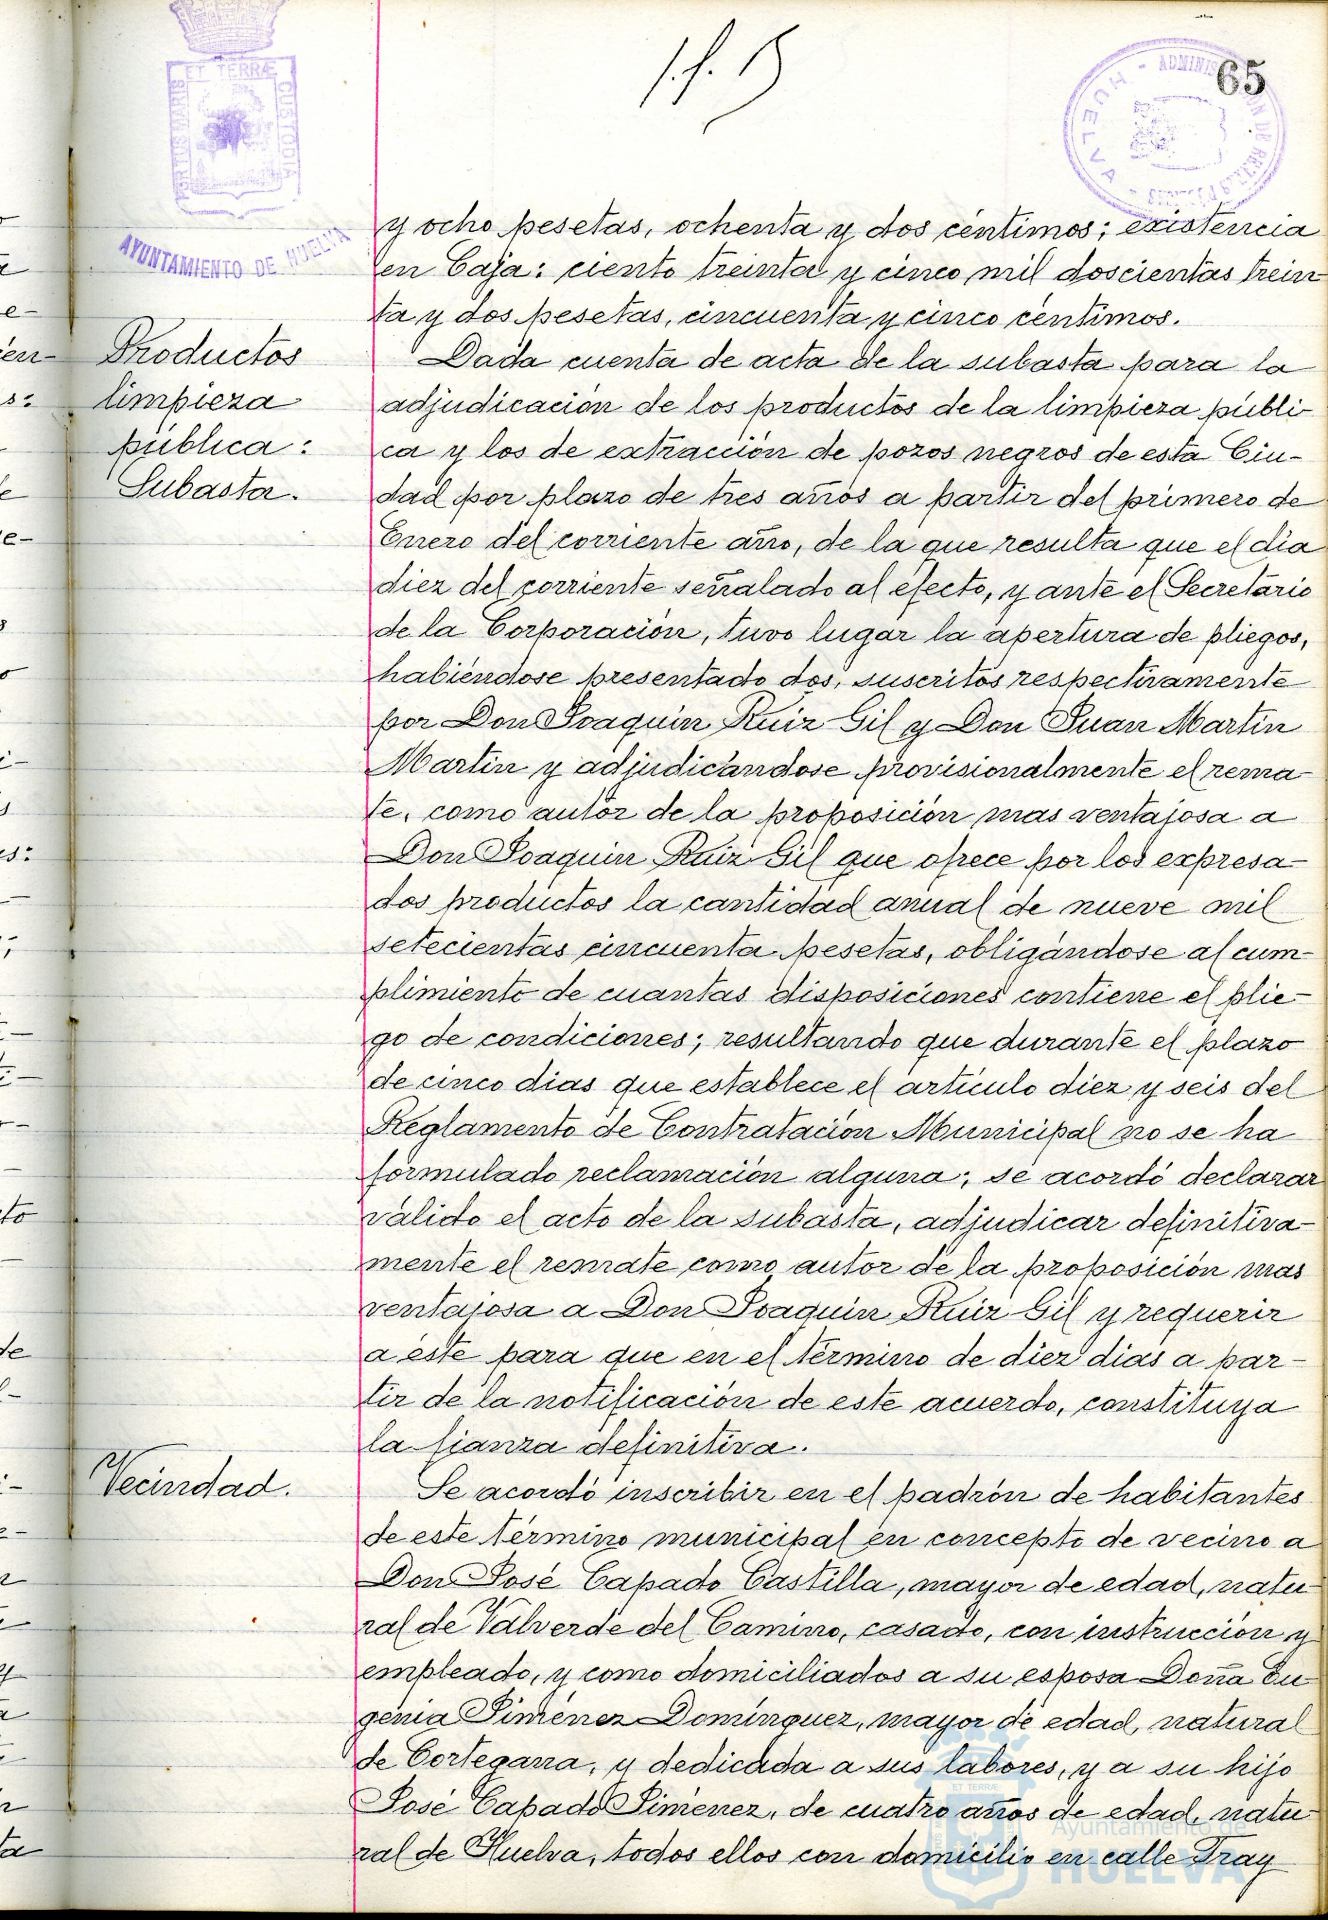 65
ET TERRÆ
PORTUS MARIS
CUSTODIA
AYUNTAMIENTO DE HUELVA
HUELVA
y ocho pesetas, ochenta y dos céntimos; existencia
en Caja: ciento treinta y cinco mil doscientas trein-
ta y dos pesetas, cincuenta y cinco céntimos.
Productos
limpieza
pública:
Subasta.
Dada cuenta de acta de la subasta para la
adjudicación de los productos de la limpieza públi-
ca y los de extracción de pozos negros de esta Ciu-
dad por plazo de tres años a partir del primero de
Enero del corriente año, de la que resulta que el día
diez del corriente señalado al efecto, y ante el Secretario
de la Corporación, tuvo lugar la apertura de pliegos,
habiéndose presentado dos, suscritos respectivamente
por Don Joaquin Ruiz Gil y Don Juan Martin
Martin y adjudicándose provisionalmente el rema-
te, como autor de la proposición mas ventajosa a
Don Joaquin Ruiz Gil que ofrece por los expresa-
dos productos la cantidad anual de nueve mil
setecientas cincuenta pesetas, obligándose al cum-
plimiento de cuantas disposiciones contiene el plie-
go de condiciones; resultando que durante el plazo
de cinco dias que establece el artículo diez y seis del
Reglamento de Contratación Municipal no se ha
formulado reclamación alguna; se acordó declarar
válido el acto de la subasta, adjudicar definitiva-
mente el remate como autor de la proposición mas
ventajosa a Don Joaquin Ruiz Gil y requerir
a éste para que en el término de diez dias a par-
tir de la notificación de este acuerdo, constituya
la fianza definitiva.
Vecindad.
Se acordó inscribir en el padrón de habitantes
de este término municipal en concepto de vecino a
Don José Capado Castilla, mayor de edad, natu-
ral de Valverde del Camino, casado, con instrucción y
empleado, y como domiciliados a su esposa Doña Eu-
genia Jiménez Domínguez, mayor de edad, natural
de Cortegana, y dedicada a sus labores, y a su hijo
José Capado Jiménez, de cuatro años de edad, natu-
ral de Huelva, todos ellos con domicilio en calle Fray
Ayuntamiento de
HUELVA